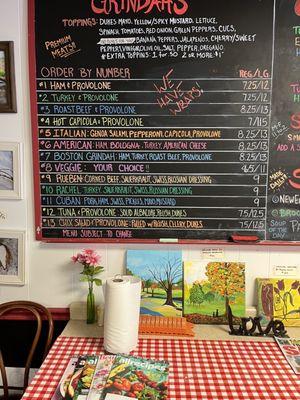 GRINDAHS
TOPPINGS: DUKES MAYO, YELLOW/SPICY MUSTARD, LETTUCE,
SPINACH, TOMATOES, RED OR GREEN PEPPERS, CUCS,
BANANA PEPPERS, JALAPENOS, CHERRY/SWEET
PEPPERS, VINEGAR, OLIVE OIL, SALT, PEPPER, OREGANO
* EXTRA TOPPINGS: 1 for 50 2 OR MORE $1*
PREMIUM
MEATS!
ORDER BY NUMBER
WE
HAVE
WRAPS!
REG/LG
#1 HAM & PROVOLONE 7.25/12
#2 TURKEY & PROVOLONE 7.25/12
#3 ROAST BEEF & PROVOLONE 8.25/13
#4 HOT CAPICOLA & PROVOLONE 7.25/12
#5 ITALIAN: GENOA SALAMI, PEPPERONI, CAPICOLA, PROVOLONE 8.25/13
#6 AMERICAN: HAM, BOLOGNA, TURKEY, AMERICAN CHEESE 8.25/13
#7 BOSTON GRINDAH: HAM, TURKEY, ROAST BEEF, PROVOLONE 8.25/13
#8 VEGGIE: YOUR CHOICE!!
#9 RUEBEN: CORNED BEEF, SAURKRAUT, SWISS, RUSSIAN DRESSING 9
#10 RACHEL: TURKEY, SAURKRAUT, SWISS, RUSSIAN DRESSING 9
#11 CUBAN: PORK, HAM, SWISS, PICKLES, MAYO, MUSTARD 9
#12 TUNA & PROVOLONE SOLID ALBACORE TUNA, DUKES 7.5/12.5
#13 CHIX SALAD & PROVOLONE: PULLED ROTISSERIE, CELERY, DUKES 7.5/12.5
MENU SUBJECT TO CHANGE
love
allrecipes